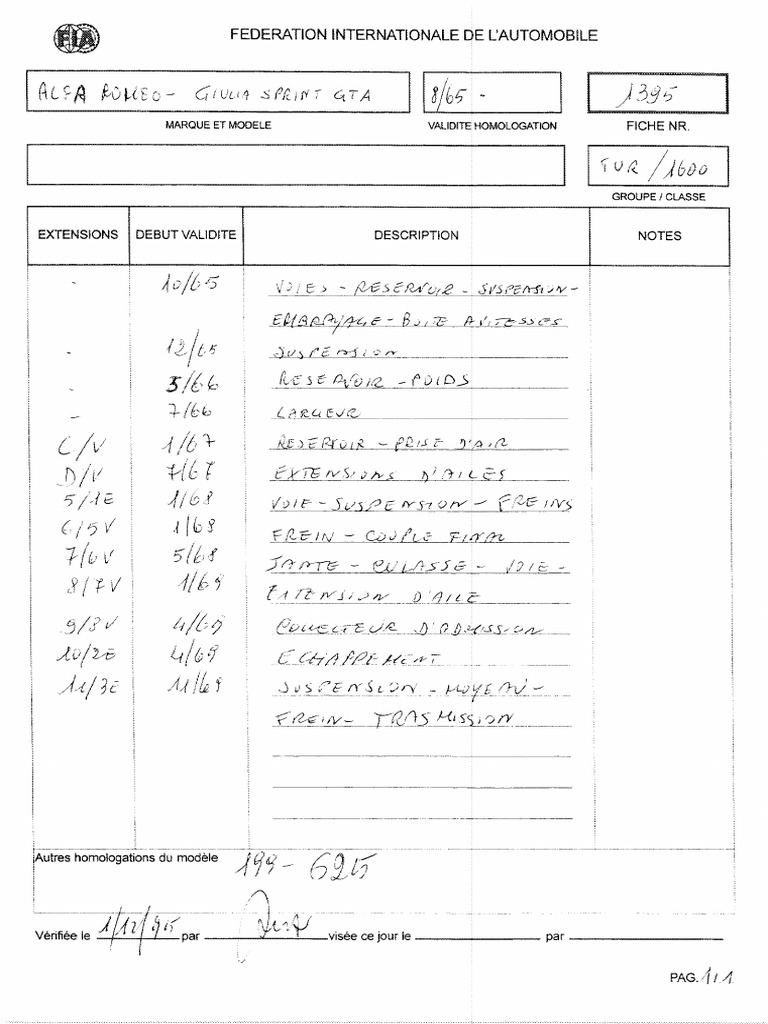 FIA
FEDERATION INTERNATIONALE DE L'AUTOMOBILE
ALFA ROMEO - GIULIA SPRINT GTA
8/65 -
1395
MARQUE ET MODELE
VALIDITE HOMOLOGATION
FICHE NR.
TUR / 1600
GROUPE / CLASSE
EXTENSIONS DEBUT VALIDITE DESCRIPTION NOTES
- 10/65 VOIES - RESERVOIR - SUSPENSION -
EMBRAYAGE - BOITE A VITESSES
- 12/65 SUSPENSION
- 5/66 RESERVOIR - POIDS
- 7/66 LARGEUR
C/V 1/67 RESERVOIR - PRISE D'AIR
D/V 7/67 EXTENSIONS D'AILES
5/1E 1/68 VOIE - SUSPENSION - FREINS
6/5V 1/68 FREIN - COUPLE FINAL
7/6V 5/68 JANTE - CULASSE - VOIE -
8/7V 1/69 EXTENSION D'AILE
9/8V 4/69 COLLECTEUR D'ADMISSION
10/2E 4/69 ECHAPPEMENT
11/3E 11/69 SUSPENSION - MOYEAU -
FREIN - TRASMISSION
Autres homologations du modèle 199 - 625
Vérifiée le 1/12/95 par visée ce jour le par
PAG. 1/1